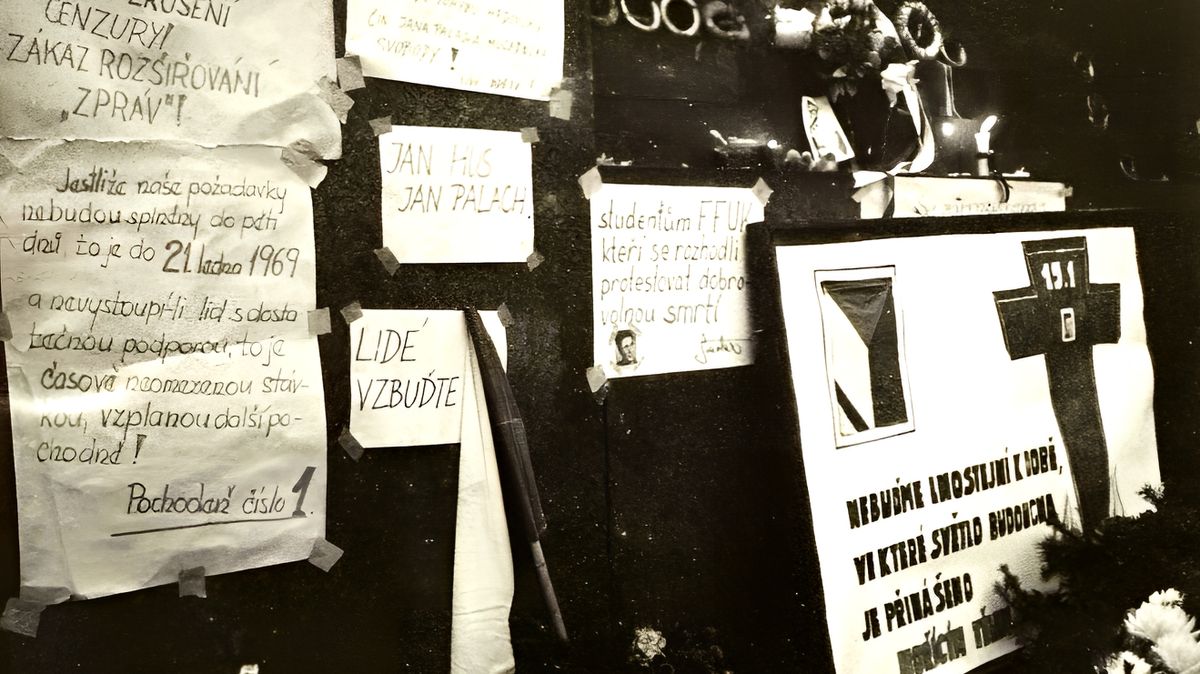 ZRUŠENÍ
CENZURY!
ZÁKAZ ROZŠIŘOVÁNÍ
„ZPRÁV“!
Jestliže naše požadavky
nebudou splněny do pěti
dnů to je do 21. ledna 1969
a nevystoupí-li lid s dosta
tečnou podporou, to je
časově neomezenou stáv-
kou, vzplanou další po-
chodně!
Pochodeň číslo 1.
ČIN JANA PALACHA
SVOBODY!
JAN HUS
-JAN PALACH.
LIDÉ
VZBUĎTE
studentům FFUK
kteří se rozhodli
protestovat dobro-
volnou smrtí
15.1
NEBUĎME LHOSTEJNÍ K DOBĚ,
VE KTERÉ SVĚTLO BUDOUCNA
JE PŘINÁŠENO
HOŘÍCÍM